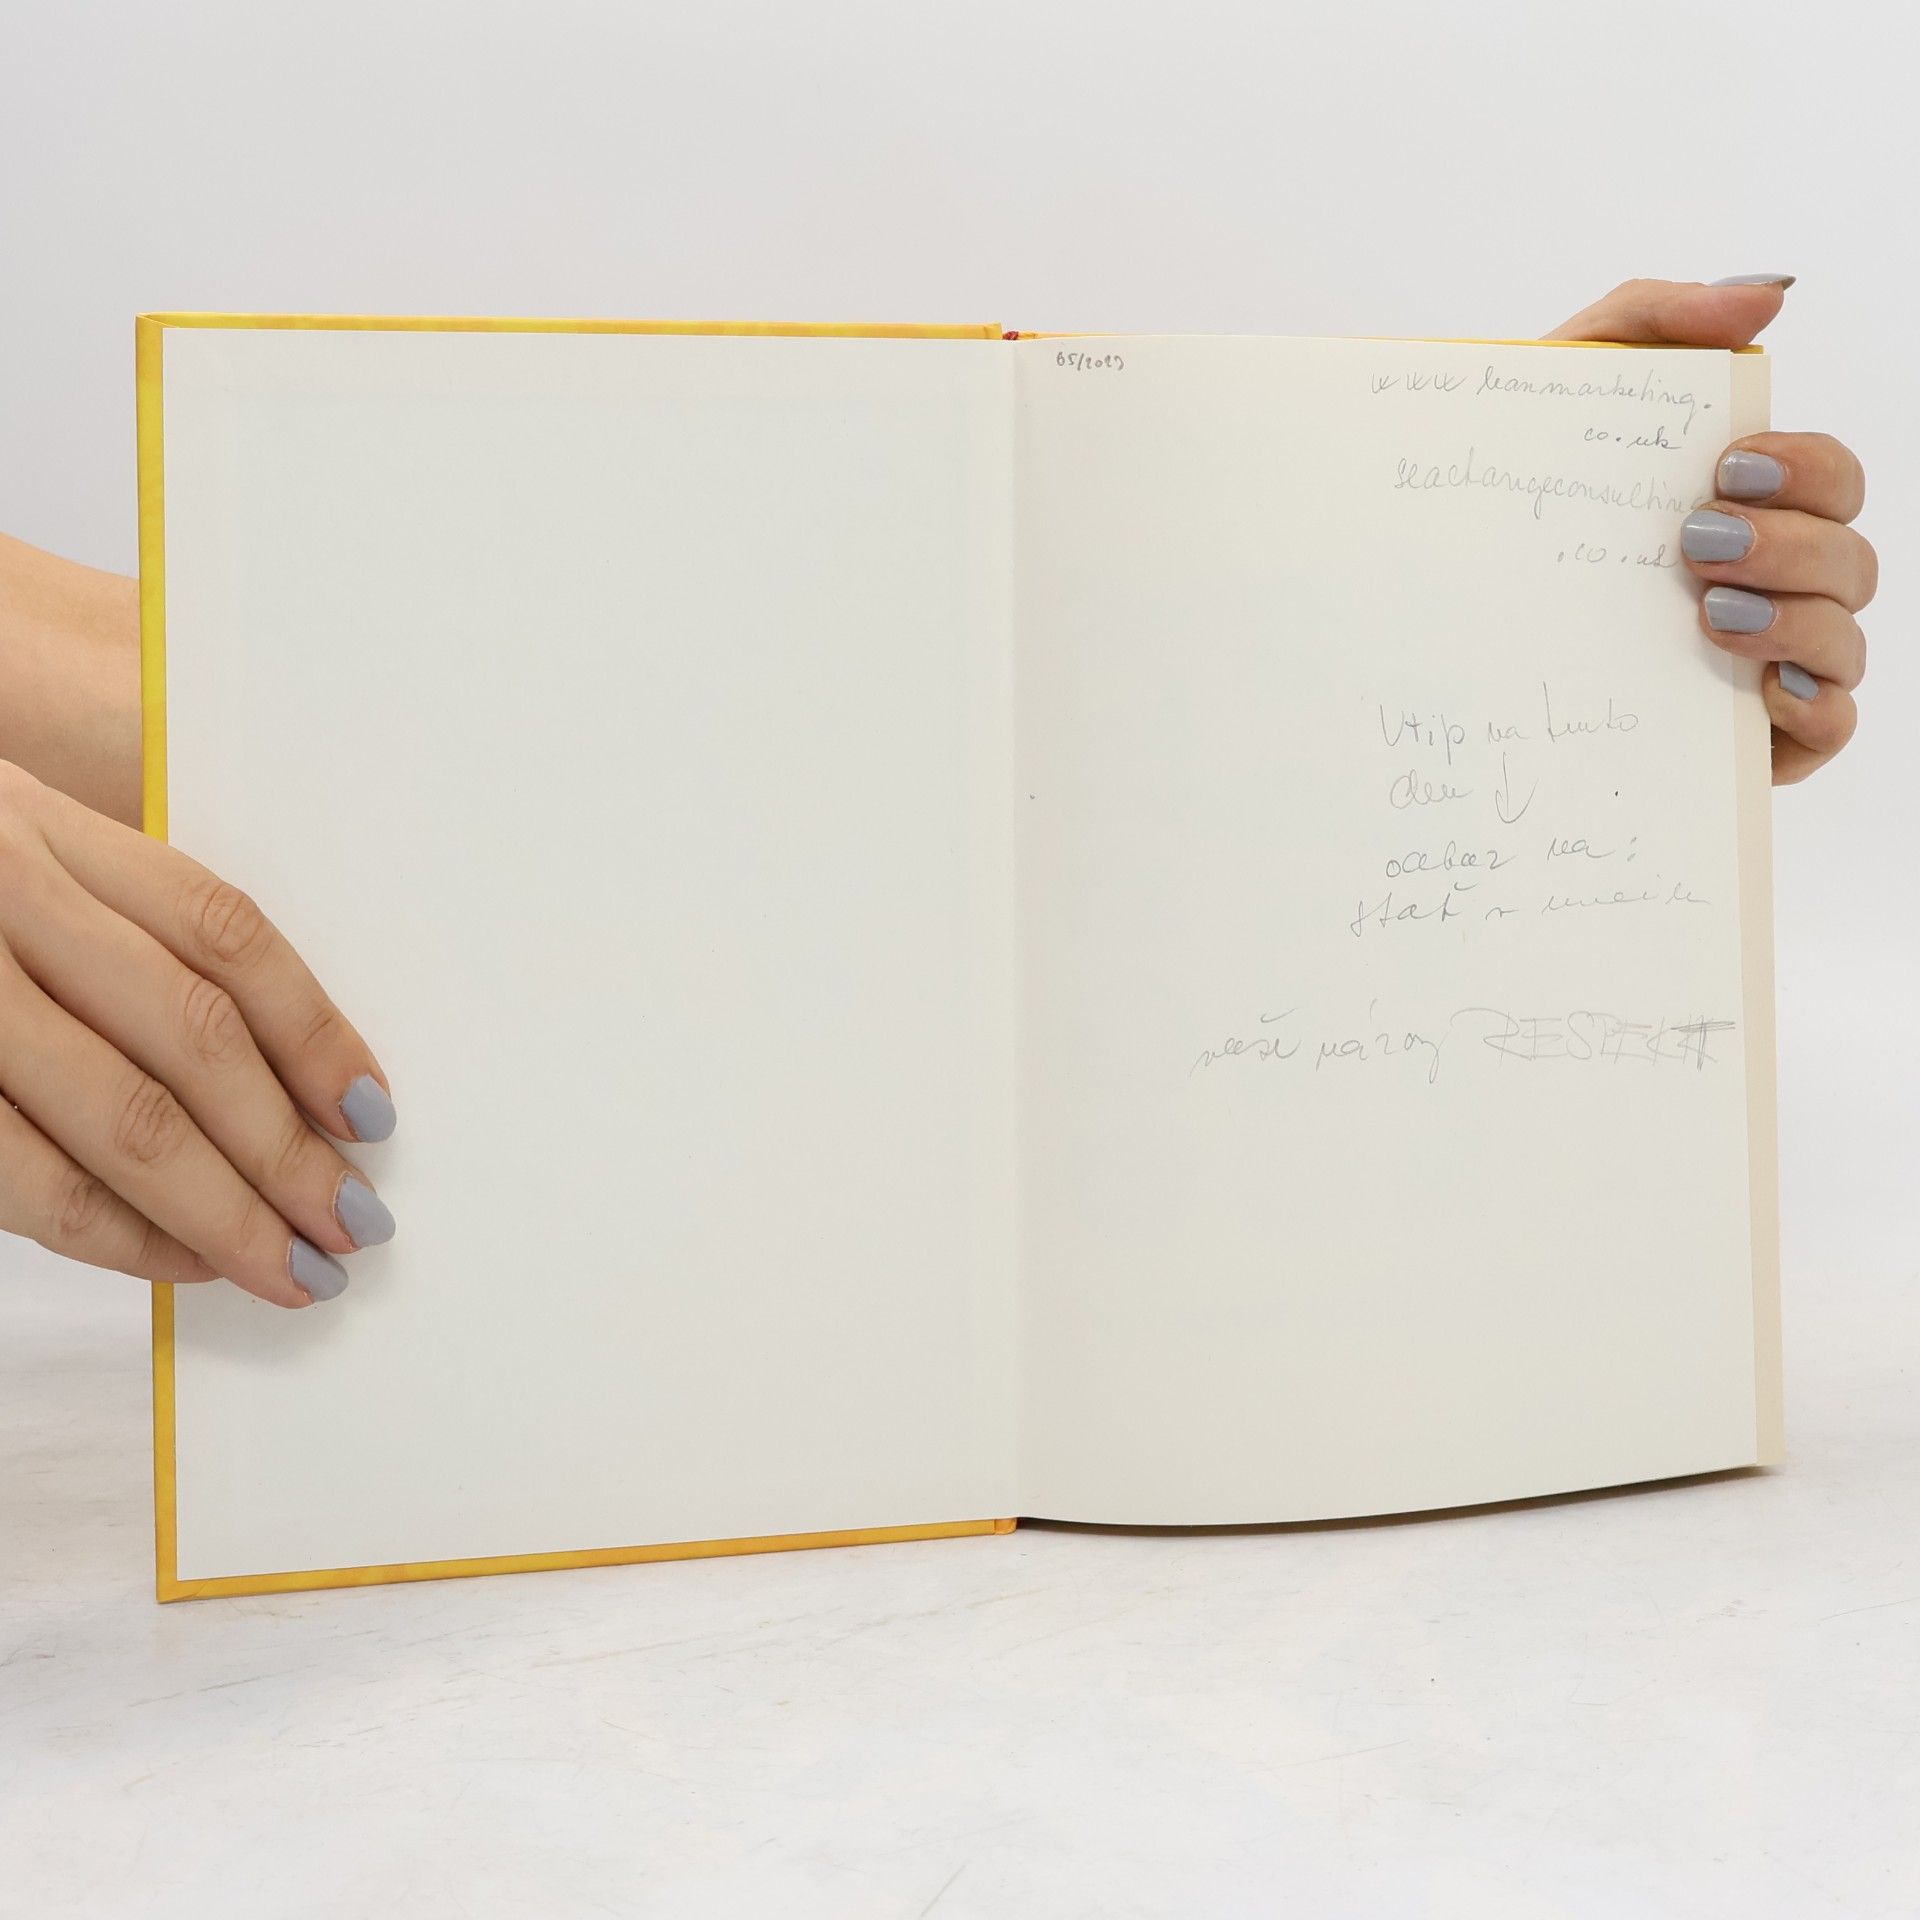 05/2023
www leanmarketing.
co.uk
seachangeconsulting
.co.uk
Vtip na tento
den ↓
odkaz na:
stať v
vaše názory RESPEKT